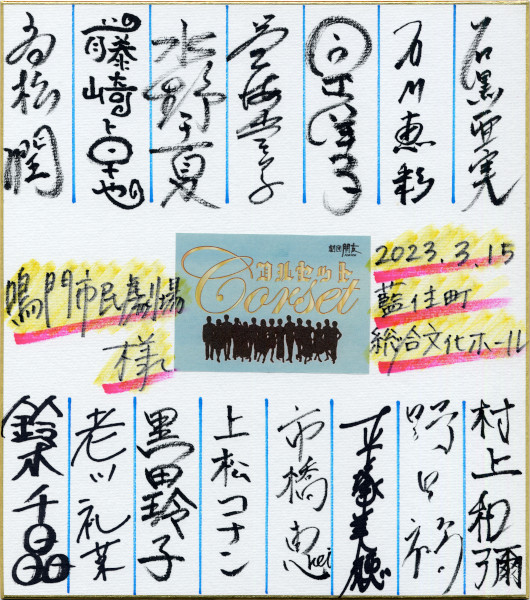 石黒亜実
石川恵彩
水野千夏
藤崎卓也
高松潤
2023.3.15
藍住町
総合文化ホール
劇団朋友
コルセット
Corset
鳴門市民劇場
様
村上和彌
野口
平塚美穂
市橋恵
kei
上松コナン
黒田玲子
老川礼菜
鈴木千晶